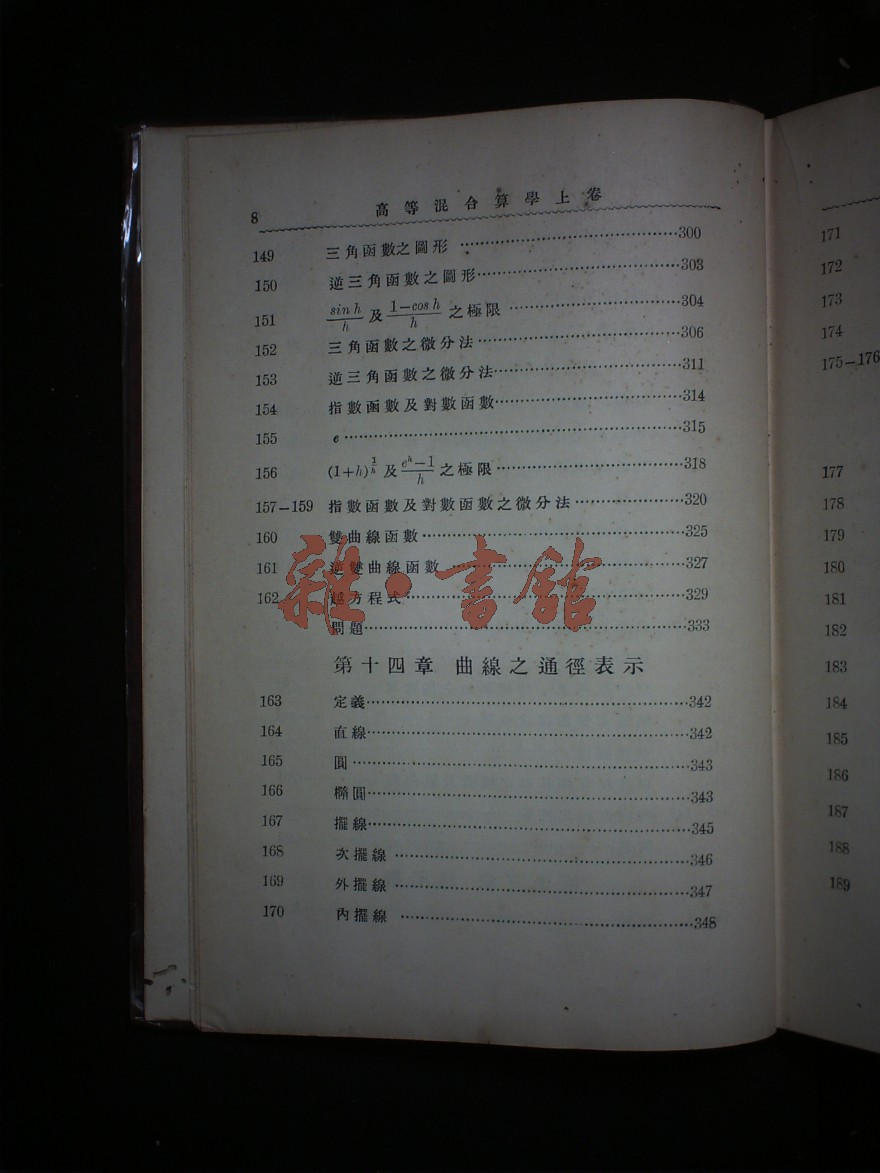 8 高等混合算學上卷
149 三角函數之圖形 ……300
150 逆三角函數之圖形……303
151 sin h/h 及 1−cos h/h 之極限 ……304
152 三角函數之微分法……306
153 逆三角函數之微分法……311
154 指數函數及對數函數……314
155 e……315
156 (1+h)^{1/h} 及 e^h−1/h 之極限……318
157–159 指數函數及對數函數之微分法……320
160 雙曲線函數……325
161 逆雙曲線函數……327
162 越方程式……329
問題……333
雜·書館
第十四章 曲線之通徑表示
163 定義……342
164 直線……342
165 圓……343
166 橢圓……343
167 擺線……345
168 次擺線……346
169 外擺線……347
170 內擺線……348
171
172
173
174
175–176
177
178
179
180
181
182
183
184
185
186
187
188
189